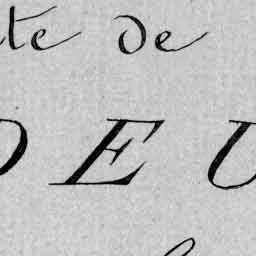 te de
DEU